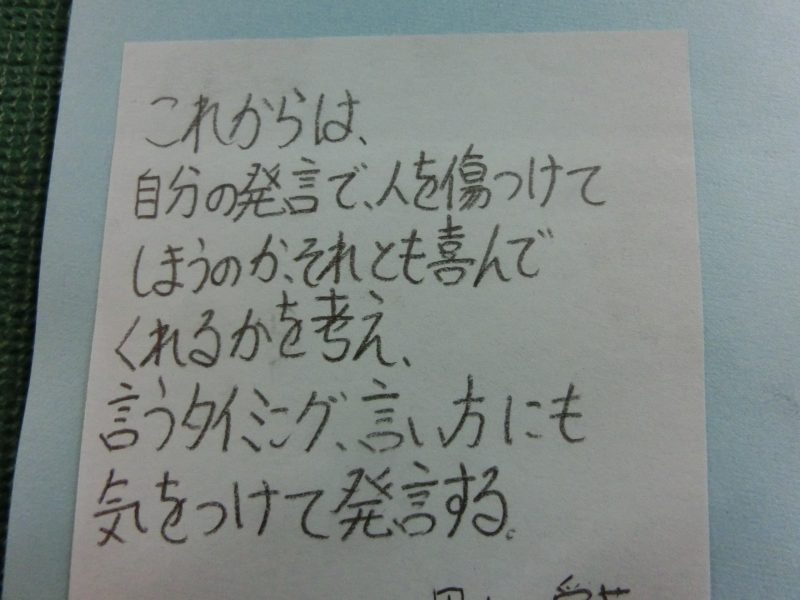 これからは、
自分の発言で、人を傷つけて
しまうのか、それとも喜んで
くれるかを考え、
言うタイミング、言い方にも
気をつけて発言する。